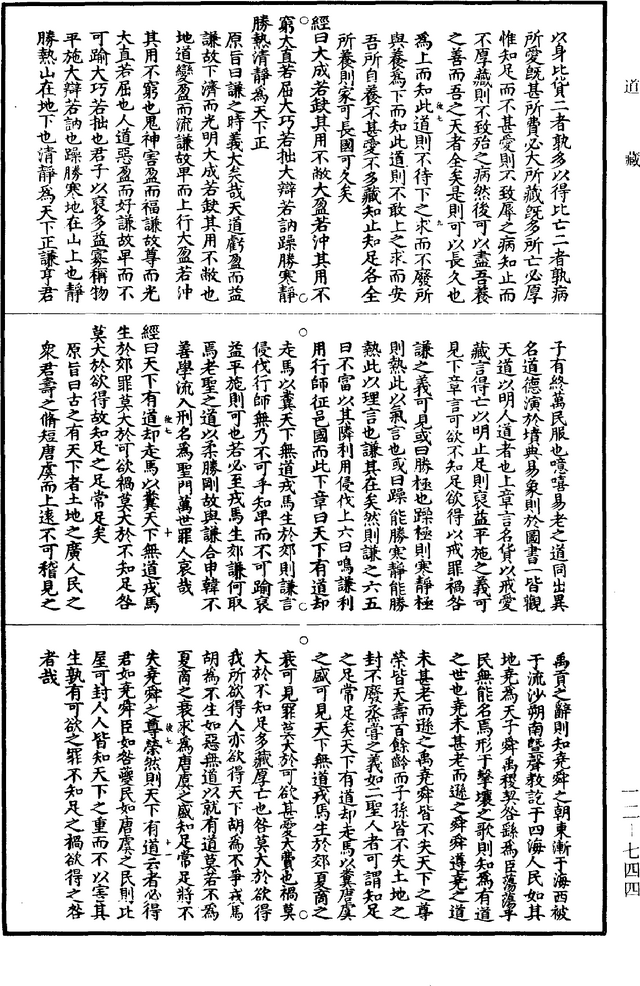 道藏
以身比貨二者孰多以得比亡二者孰病
所愛旣甚所費必大所藏旣多所亡必厚
惟知足而不甚愛則不致辱之病知止而
不厚藏則不致殆之病然後可以盡吾養
之善而吾之天者全矣是則可以長久也
爲上而知此道則不待下之求而不廢所
與養爲下而知此道則不敢上之求而安
吾所自養不甚愛不多藏知止知足各全
所養則家可長國可久矣
經曰大成若缺其用不敝大盈若沖其用不
窮大直若屈大巧若拙大辯若訥躁勝寒靜
勝熱清靜爲天下正
原旨曰謙之時義大矣哉天道虧盈而益
謙故下濟而光明大成若缺其用不敝也
地道變盈而流謙故卑而上行大盈若沖
其用不窮也鬼神害盈而福謙故尊而光
大直若屈也人道惡盈而好謙故卑而不
可踰大巧若拙也君子以裒多益寡稱物
平施大辯若訥也躁勝寒地在山上也靜
勝熱山在地下也清靜爲天下正謙亨君
子有終萬民服也噫嘻易老之道同出異
名道德演於墳典易象則於圖書一皆觀
天道以明人道者也上章言名貨以戒愛
藏言得亡以明止足則裒益平施之義可
見下章言可欲不知足欲得以戒罪禍咎
謙之義可見或曰勝極也躁極則寒靜極
則熱此以氣言也或曰躁能勝寒靜能勝
熱此以理言也謙其在矣然則謙之六五
曰不富以其隣利用侵伐上六曰鳴謙利
用行師征邑國而此下章曰天下有道却
走馬以糞天下無道戎馬生於郊則謙言
侵伐行師無乃不可乎知卑而不可踰裒
益平施則可也若必至戎馬生郊謙何取
焉老聖之道以柔勝剛故與謙合申韓不
善學流入刑名爲聖門萬世罪人哀哉
經曰天下有道却走馬以糞天下無道戎馬
生於郊罪莫大於可欲禍莫大於不知足咎
莫大於欲得故知足之足常足矣
原旨曰古之有天下者土地之廣人民之
衆君壽之脩短唐虞而上遠不可稽見之
禹貢之辭則知堯舜之朝東漸于海西被
于流沙朔南曁聲敎訖于四海人民如其
地堯爲天子舜禹稷契咎繇爲臣蕩蕩乎
民無能名焉形于擊壤之歌則知爲有道
之世也堯未甚老而遜之舜舜遵堯之道
未甚老而遜之禹堯舜皆不失天下之尊
榮皆天壽百餘齡而子孫皆不失土地之
封不廢烝嘗之義如二聖人者可謂知足
之足常足矣天下有道却走馬以糞唐虞
之盛可見天下無道戎馬生於郊夏商之
衰可見罪莫大於可欲甚愛大費也禍莫
大於不知足多藏厚亡也咎莫大於欲得
我所欲得人亦欲得天下胡爲不爭戎馬
胡爲不生如惡無道以就有道莫若不爲
夏商之衰求爲唐虞之盛知足常足將不
失堯舜之尊榮然則天下有道云者必得
君如堯舜臣如咎夔民如唐虞之民則比
屋可封人人皆知天下之重而不以害其
生孰有可欲之罪不知足之禍欲得之咎
者哉
一二—七四四